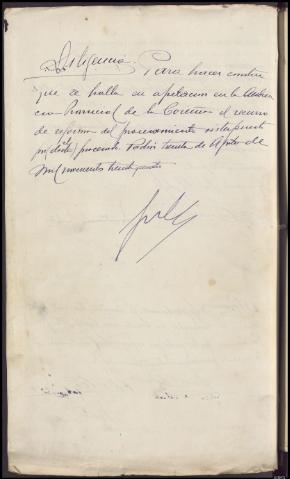 Diligencia. Para hacer constar
que se halla en apelación en la Audien
cia Provincial de la Coruña el recurso
de reforma del procesamiento interpuesto
por procesado treinta de Agosto de
mil novecientos treinta